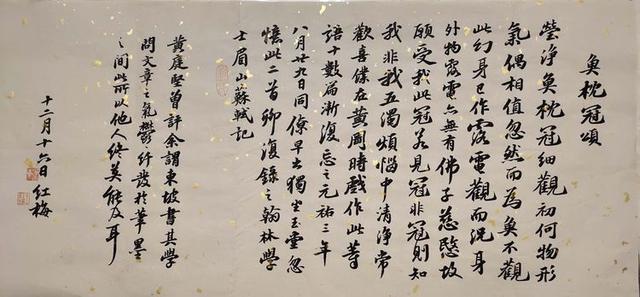 魚枕冠頌
瑩淨魚枕冠細觀初何物形
氣偶相值忽然而為魚不觀
此幻身已作露電觀而況身
外物露電亦無有佛子慈愍故
願受我此冠若見冠非冠則知
我非我五濁煩惱中清淨常
歡喜僕在黃岡時戲作此等
語十數篇漸復忘之元祐三年
八月廿九日同僚早出獨坐玉堂忽
憶此二首聊復錄之翰林學
士眉山蘇軾記
黃庭堅曾評余謂東坡書其學
問文章之氣鬱々芊々發於筆墨
之間此所以他人終莫能及耳
十二月十六日紅梅